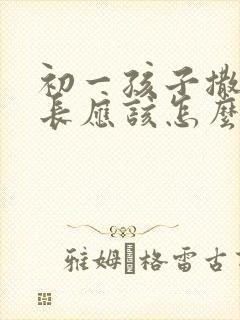 初一孩子撒
长应该怎麼
雅姆·格雷古